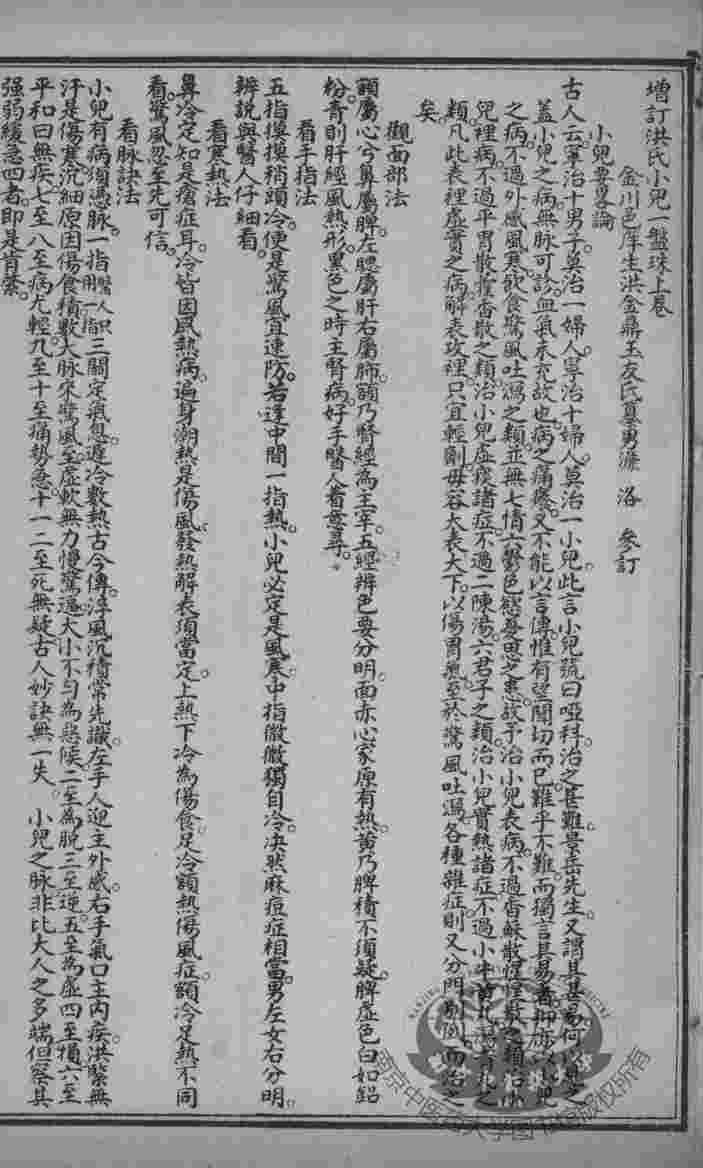 增訂洪氏小兒一盤珠上卷
金川邑庠生洪金鼎玉友氏纂男濂洛參訂
小兒要畧論
古人云寧治十男子莫治一婦人寧治十婦人莫治一小兒此言小兒號曰啞科治之甚難景岳先生又謂其甚易何以見之
蓋小兒之病無脉可診血氣未充故也病之痛癢又不能以言傳惟有望聞切而已難乎不難而獨言其易者抑亦以小兒
之病不過外感風寒飲食驚風吐瀉之類並無七情六鬱色慾憂思之患故予治小兒表病不過香蘇散惺惺散之類治小
兒裡病不過平胃散藿香散之類治小兒虛痰諸症不過二陳湯六君子之類治小兒實熱諸症不過小柴
類凡此表裡虛實之病解表攻裡只宜輕劑毋容大表大下以傷胃氣至於驚風吐瀉各種雜症則又分門別類而治之
矣
觀面部法
額屬心兮鼻屬脾左腮屬肝右屬肺頦乃腎經為主宰五經辨色要分明面赤心家原有熱黃乃脾積不須疑脾虛色白如鉛
粉青則肝經風熱形黑色之時主腎病好手醫人着意尋
看手指法
五指摸摸稍頭冷便是驚風宜速防若逢中間一指熱小兒必定是風寒中指微微獨自冷决然麻痘症相當男左女右分明
辨說與醫人仔細看
看寒熱法
鼻冷定知是瘡症耳冷皆因風熱病遍身潮熱是傷風發熱解表須當定上熱下冷為傷食足冷額熱傷風症額冷足熱不同
看驚風忽至先可信
看脉訣法
小兒有病須憑脉一指醫人用一指三關定氣息遲冷數熱古今傳浮風沉積常先識左手人迎主外感右手氣口主內疾洪緊無
汗是傷寒沉細原因傷食積數大脉宋驚風至虛軟無力慢驚逼大小不勻為惡候二至為脫三至逆五至為虛四至損六至
平和曰無疾七至八至病尤輕九至十至痛勢急十一二至死無疑古人妙訣無一失 小兒之脉非比大人之多端但察其
强弱緩急四者即是肯綮
南京中医药大学图书馆版权所有